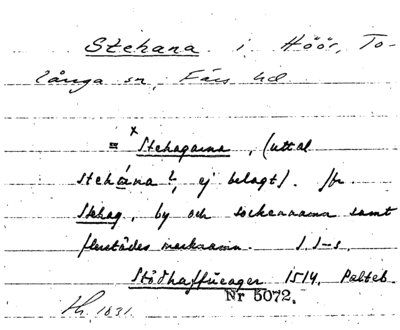 Stehana i Höör, To-
långa sn, Färs hd
= Stehagarna, (uttal
stehána?, ej belagt). Jfr
Stehag, by och sockennamn samt
flerstädes marknamn.
Stödhaffueager 1514,
Nr 5072.